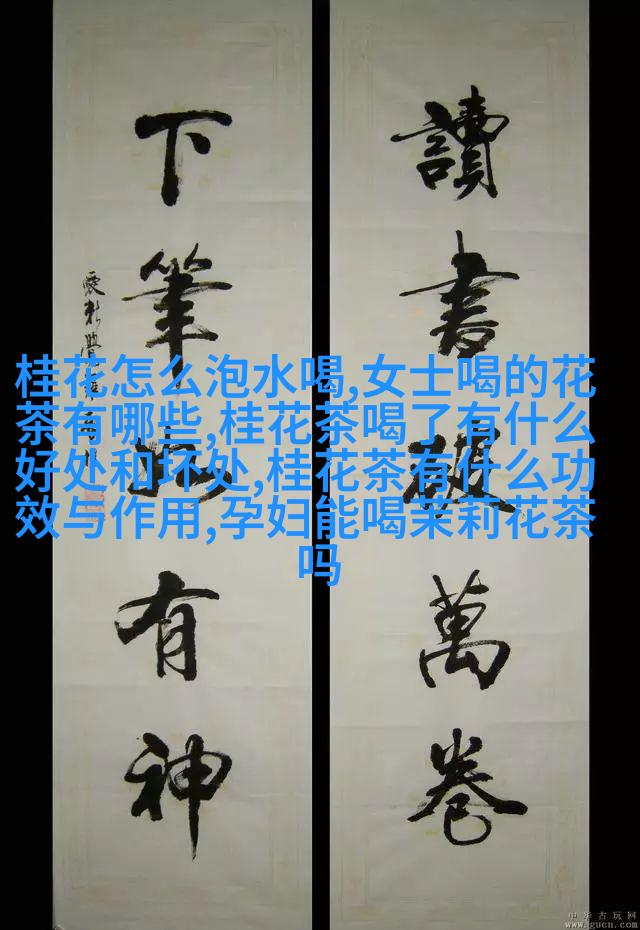 讀書破萬卷
下筆如有神
桂花怎么泡水喝,女士喝的花
茶有哪些,桂花茶喝了有什么
好处和坏处,桂花茶有什么功
效与作用,孕妇能喝茉莉花茶
吗
中华古玩网
www.gucn.com